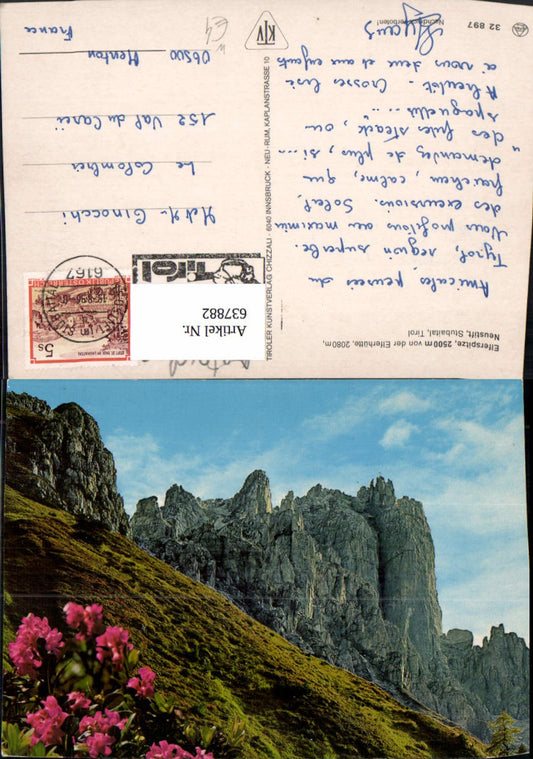 Elferspitze, 2500 m von der Elferhütte, 2080 m,
Neustift, Stubaital, Tirol
Amicales pensées du
Tyrol, région superbe.
Nous profitons au maximum
des excursions. Soleil,
fraîcheur, calme, que
demander de plus, si...
des frites steack, ou
spaguettis ...
A bientôt - Grosses bises
à vous deux et aux enfants
32 897
Nachdruck verboten!
TIROLER KUNSTVERLAG CHIZZALI - 6040 INNSBRUCK - NEU-RUM, KAPLANSTRASSE 10
KTV
Tirol
6167
REPUBLIK ÖSTERREICH
5 s
Artikel Nr.
637882
M et Mme Ginocchi
Le Colombier
152 Val du Careï
06500 Menton
France